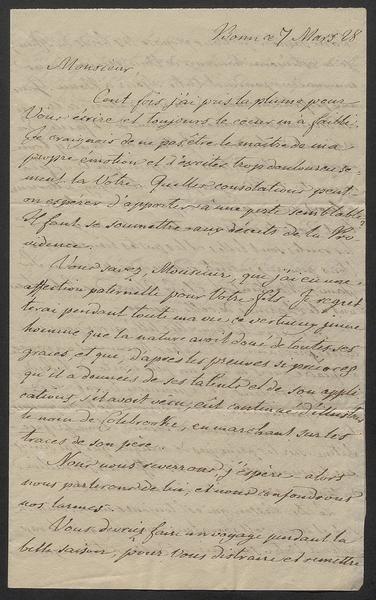 Bonn ce 7 Mars 28
Monsieur,
Cent fois j'ai pris la plume pour
Vous écrire et toujours le coeur m'a failli.
Je craignois de ne pas être le maître de ma
propre émotion et d'exciter trop douloureuse-
ment la Vôtre. Quelles consolations peut
on espérer d'apporter à une perte semblable?
Il faut se soumettre aux décrets de la Pro
vidence.
Vous savez, Monsieur, que j'ai eu une
affection paternelle pour Votre fils. Je regret
terai pendant toute ma vie ce vertueux jeune
homme que la nature avoit doué de toutes ses
graces, et que, d'après les preuves si précoces
qu'il a données de ses talents et de son appli
cation, s'il avoit vécu, eût continué d'illustrer
le nom de Colebrooke, en marchant sur les
traces de son père.
Nous nous reverrons, j'espère – alors
nous parlerons de lui, et nous confondrons
nos larmes.
Vous devriez faire un voyage pendant la
belle saison, pour Vous distraire et remettre